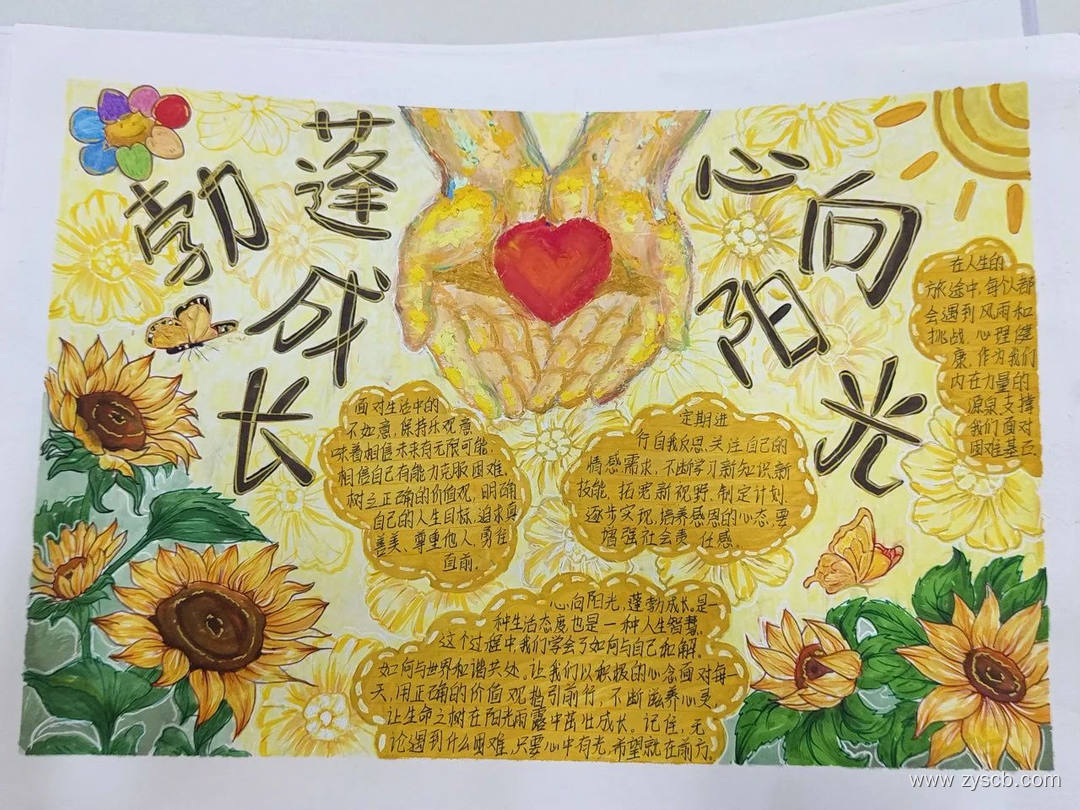 心向阳光
蓬勃成长
在人生的
旅途中,每个人都
会遇到风雨和
挑战,心理健
康,作为我们
内在力量的
源泉,支撑
我们面对
困难基石
面对生活中的
不如意,保持乐观意
味着相信未来有无限可能,
相信自己有能力克服困难,
树立正确的价值观,明确
自己的人生目标,追求真
善美,尊重他人,勇往
直前。
定期进
行自我反思,关注自己的
情感需求,不断学习新知识,新
技能,拓宽新视野,制定计划,
逐步实现,培养感恩的心态,要
增强社会责任感。
心向阳光,蓬勃成长。是一
种生活态度也是一种人生智慧,
这个过程中,我们学会了如何与自己和解,
如何与世界和谐共处。让我们以积极的心态面对每一
天,用正确的价值观指引前行,不断滋养心灵
让生命之树在阳光雨露中茁壮成长。记住,无
论遇到什么困难,只要心中有光,希望就在前方。
www.zyscb.com